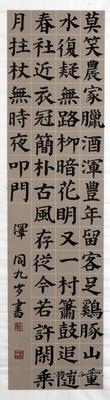 莫笑農家臘酒渾豐年留客足鷄豚山重
水復疑無路柳暗花明又一村簫鼓追隨
春社近衣冠簡朴古風存從今若許閑乘
月拄杖無時夜叩門
九 書